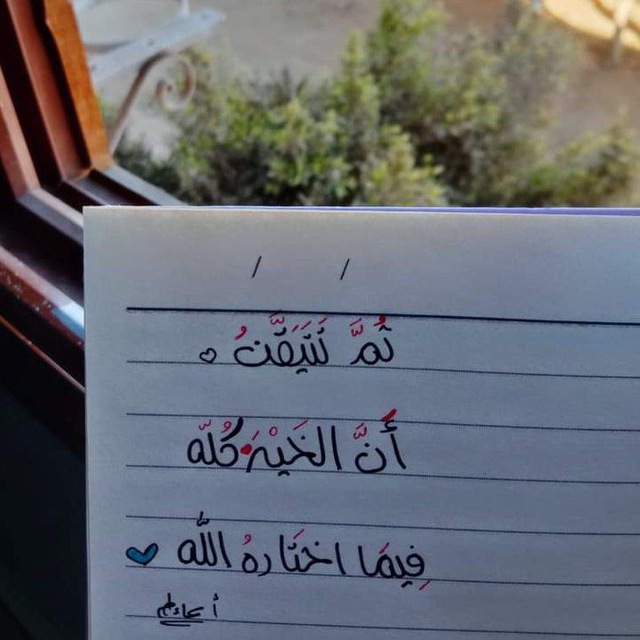 ثُمَّ نَتَيَقَّنُ
أَنَّ الخَيْرَ كُلّه
فِيمَا اختَارهُ اللّٰه